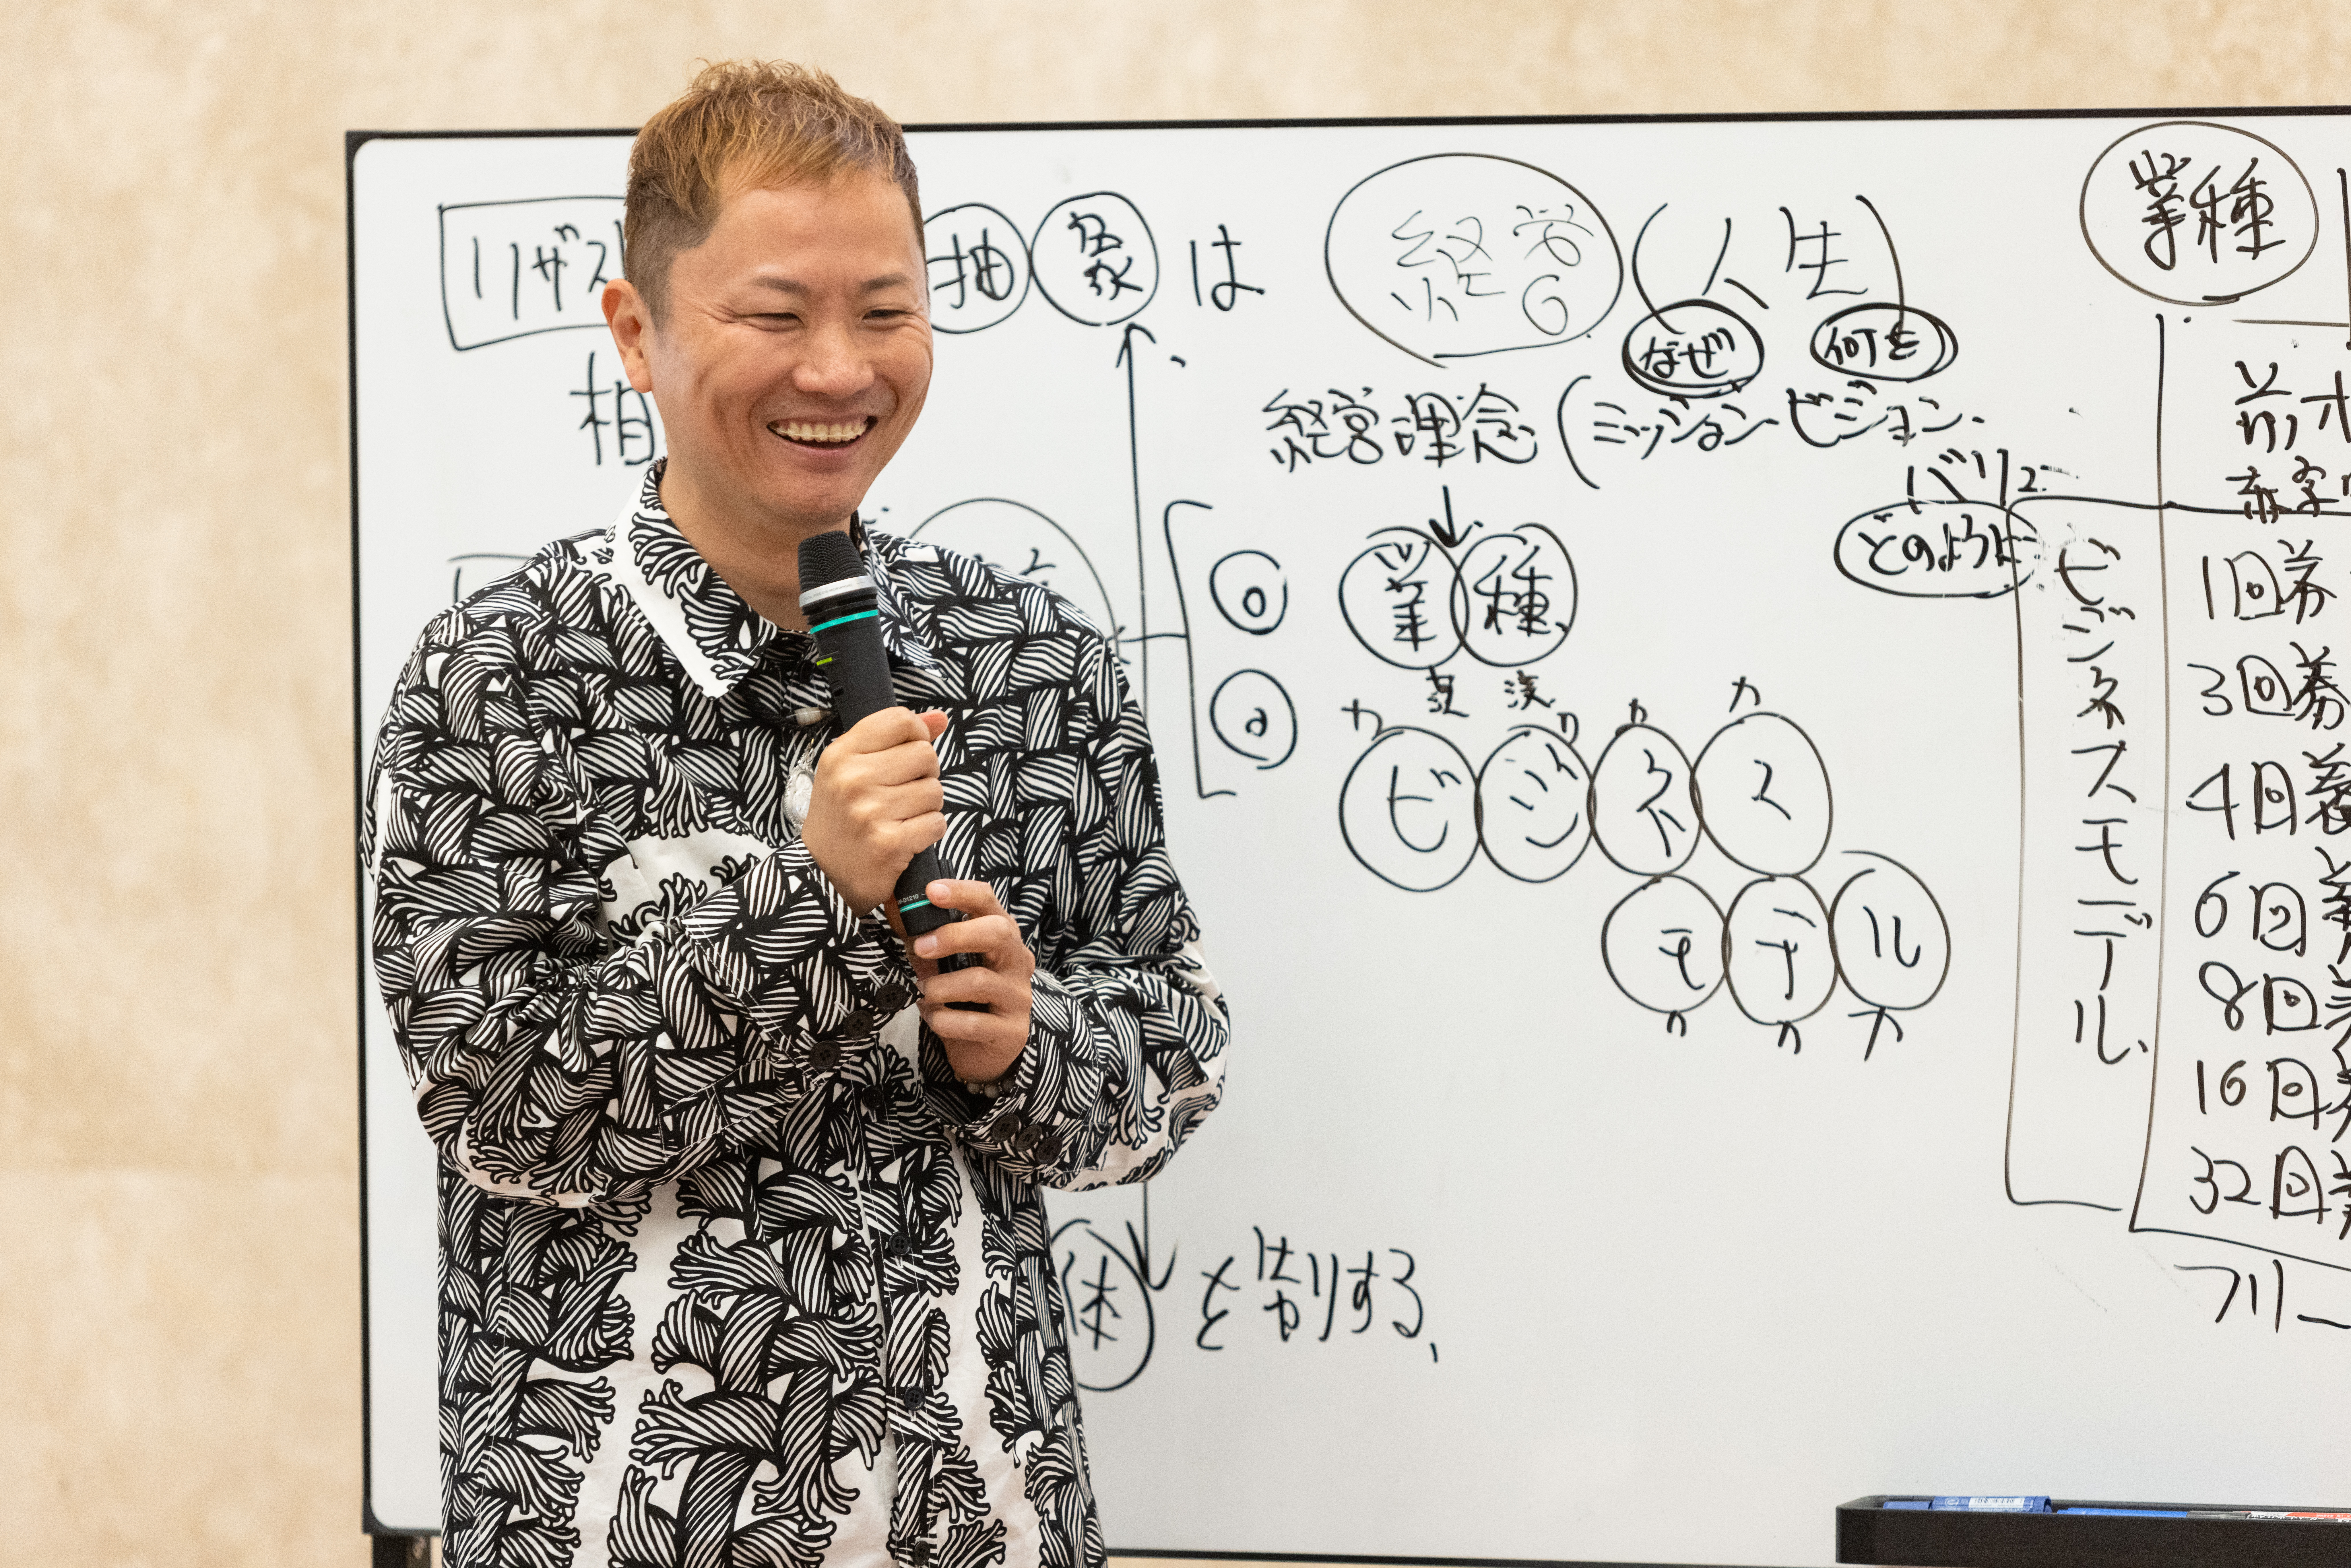 リザスト 抽象は 経営 (人生)
なぜ 何を
相
経営理念 (ミッション ビジョン
バリュー
どのように
業種
ビジネス
カ カ カ カ
モデル
カ カ カ
体を制する
業種
ビジネスモデル
1回券
3回券
4回券
6回券
8回
16回
32回
フリー